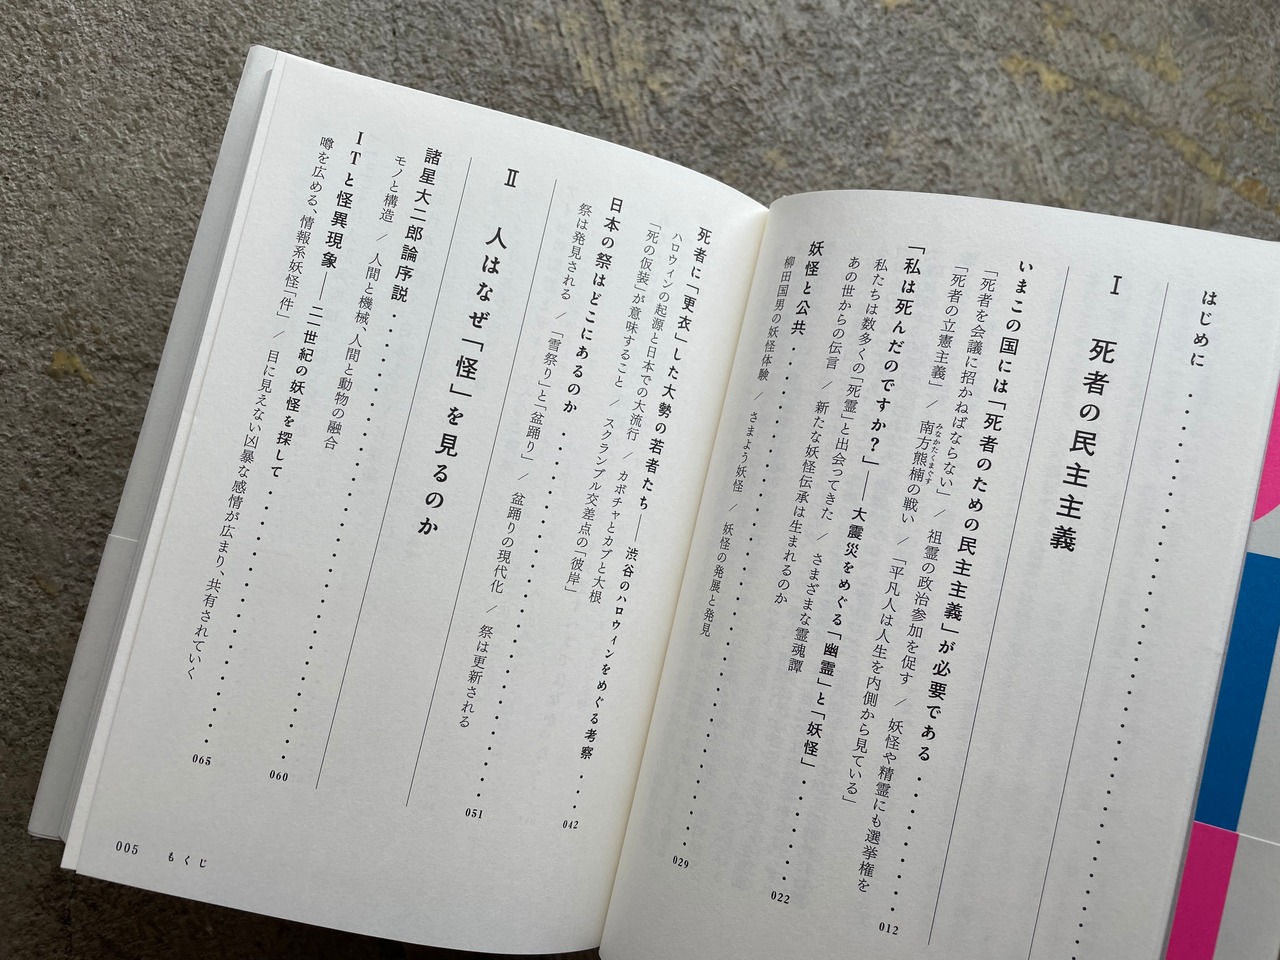 はじめに・・・・・・・・・・・・・・・・・・・・・・・・・・・・・・
Ⅰ 死者の民主主義
いまこの国には「死者のための民主主義」が必要である・・・・・・・・・・・・012
「死者を会議に招かねばならない」／祖霊の政治参加を促す／妖怪や精霊にも選挙権を
「死者の立憲主義」／南方熊楠の戦い／「平凡人は人生を内側から見ている」
みなかたくまぐす
「私は死んだのですか？」——大震災をめぐる「幽霊」と「妖怪」・・・・・・・・022
私たちは数多くの「死霊」と出会ってきた／さまざまな霊魂譚
あの世からの伝言／新たな妖怪伝承は生まれるのか
妖怪と公共・・・・・・・・・・・・・・・・・・・・・・・・・・・・・・029
柳田国男の妖怪体験／さまよう妖怪／妖怪の発展と発見
死者に「更衣」した大勢の若者たち——渋谷のハロウィンをめぐる考察・・・・042
ハロウィンの起源と日本での大流行／カボチャとカブと大根
「死の仮装」が意味すること／スクランブル交差点の「彼岸」
日本の祭はどこにあるのか・・・・・・・・・・・・・・・・・・・・・・・051
祭は発見される／「雪祭り」と「盆踊り」／盆踊りの現代化／祭は更新される
Ⅱ 人はなぜ「怪」を見るのか
諸星大二郎論序説・・・・・・・・・・・・・・・・・・・・・・・・・・・060
モノと構造／人間と機械、人間と動物の融合
ITと怪異現象——二一世紀の妖怪を探して・・・・・・・・・・・・・・・・065
噂を広める、情報系妖怪「件」／目に見えない凶暴な感情が広まり、共有されていく
005 もくじ